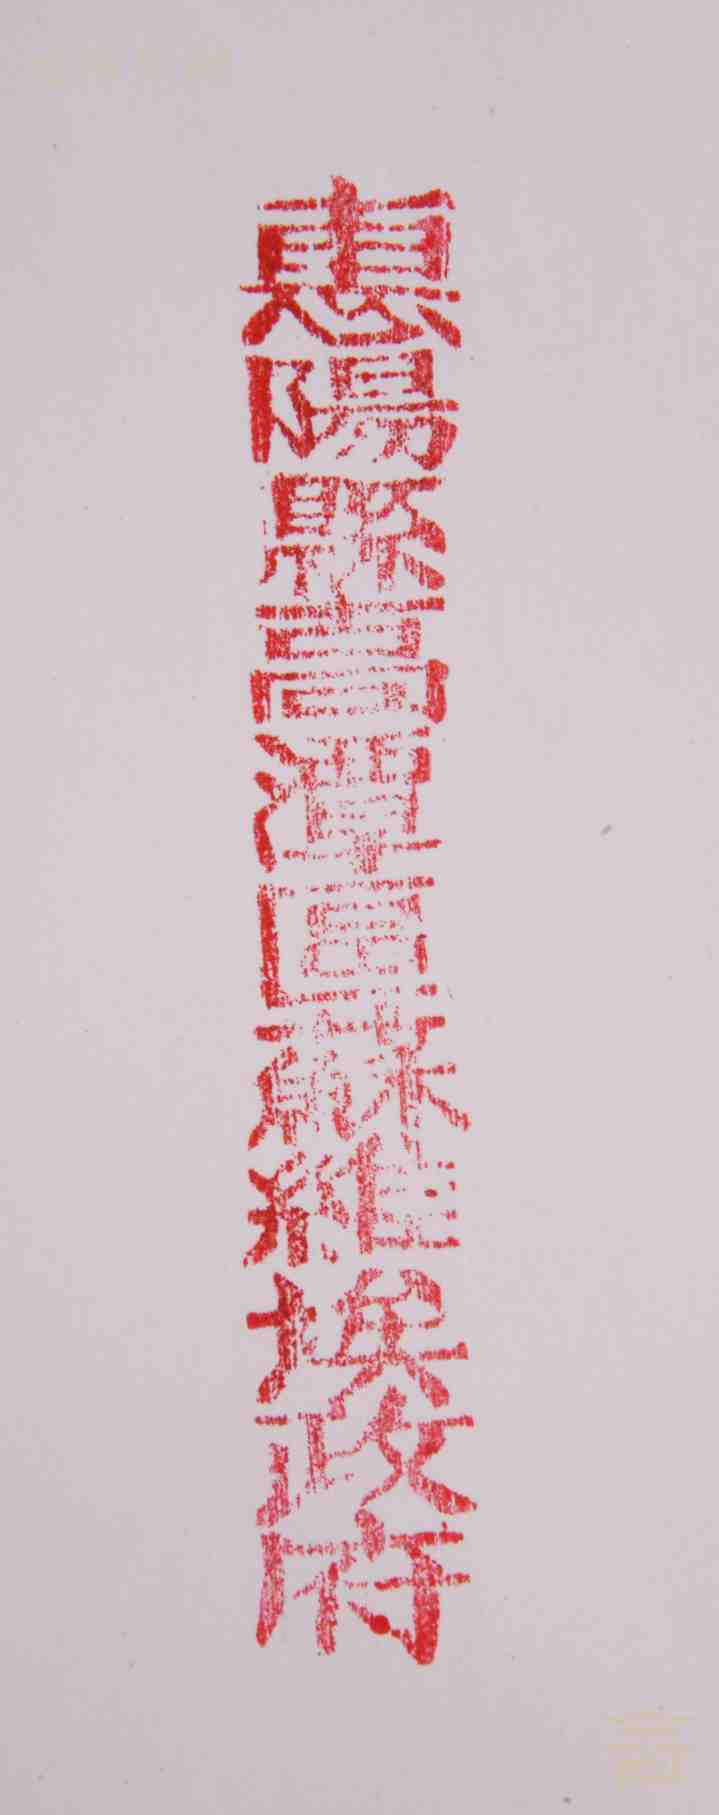 惠陽縣高潭區蘇維埃政府